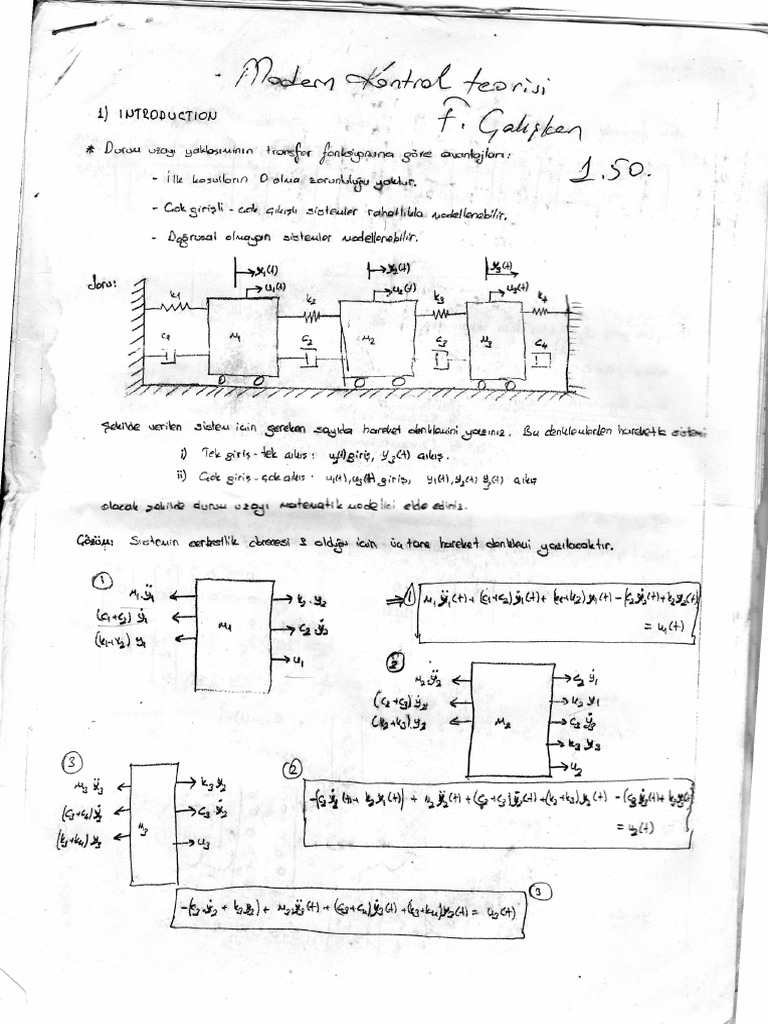 Modern Kontrol teorisi
F. Çalışkan
1) INTRODUCTION
* Durum uzayı yaklaşımının transfer fonksiyonuna göre avantajları:
1.50.
- İlk koşulların 0 olma zorunluluğu yoktur.
- Çok girişli - çok çıkışlı sistemler rahatlıkla modellenebilir.
- Doğrusal olmayan sistemler modellenebilir.
y₁(t) y₂(t) y₃(t)
Soru: u₁(t) u₂(t) u₃(t)
k₁ k₂ k₃ k₄
M₁ M₂ M₃
c₁ c₂ c₃ c₄
Şekilde verilen sistem için gereken sayıda hareket denklemini yazınız. Bu denklemlerden hareketle sistemi
i) Tek giriş-tek çıkış: giriş, y₃(t) çıkış.
ii) Çok giriş-çok çıkış: u₁(t), u₃(t) giriş, y₁(t), y₂(t) y₃(t) çıkış
olacak şekilde durum uzayı matematik modelini elde ediniz.
Çözüm: Sistemin serbestlik derecesi 3 olduğu için üç tane hareket denklemi yazılacaktır.
①
M₁.ÿ₁
(c₁+c₂) ẏ₁
(k₁+k₂) y₁
M₁
k₂.y₂
c₂.ẏ₂
u₁
⇒ 1 M₁ÿ₁(t) + (c₁+c₂)ẏ₁(t) + (k₁+k₂)y₁(t) - (c₂ẏ₂(t)+k₂y₂(t))
= u₁(t)
②
M₂.ÿ₂
(c₂+c₃)ẏ₂
(k₂+k₃).y₂
M₂
c₂ ẏ₁
k₂ y₁
c₃ ẏ₃
k₃ y₃
u₂
③
M₃ ÿ₃
(c₃+c₄)ẏ₃
(k₃+k₄) y₃
M₃
k₃ y₂
c₃.ẏ₂
u₃
②
-(c₂ẏ₁(t) + k₂y₁(t)) + M₂ÿ₂(t) + (c₂+c₃)ẏ₂(t) + (k₂+k₃)y₂(t) - (c₃ẏ₃(t)+k₃y₃(t))
= u₂(t)
③
-(c₃.ẏ₂ + k₃y₂) + M₃.ÿ₃(t) + (c₃+c₄)ẏ₃(t) + (k₃+k₄)y₃(t) = u₃(t)